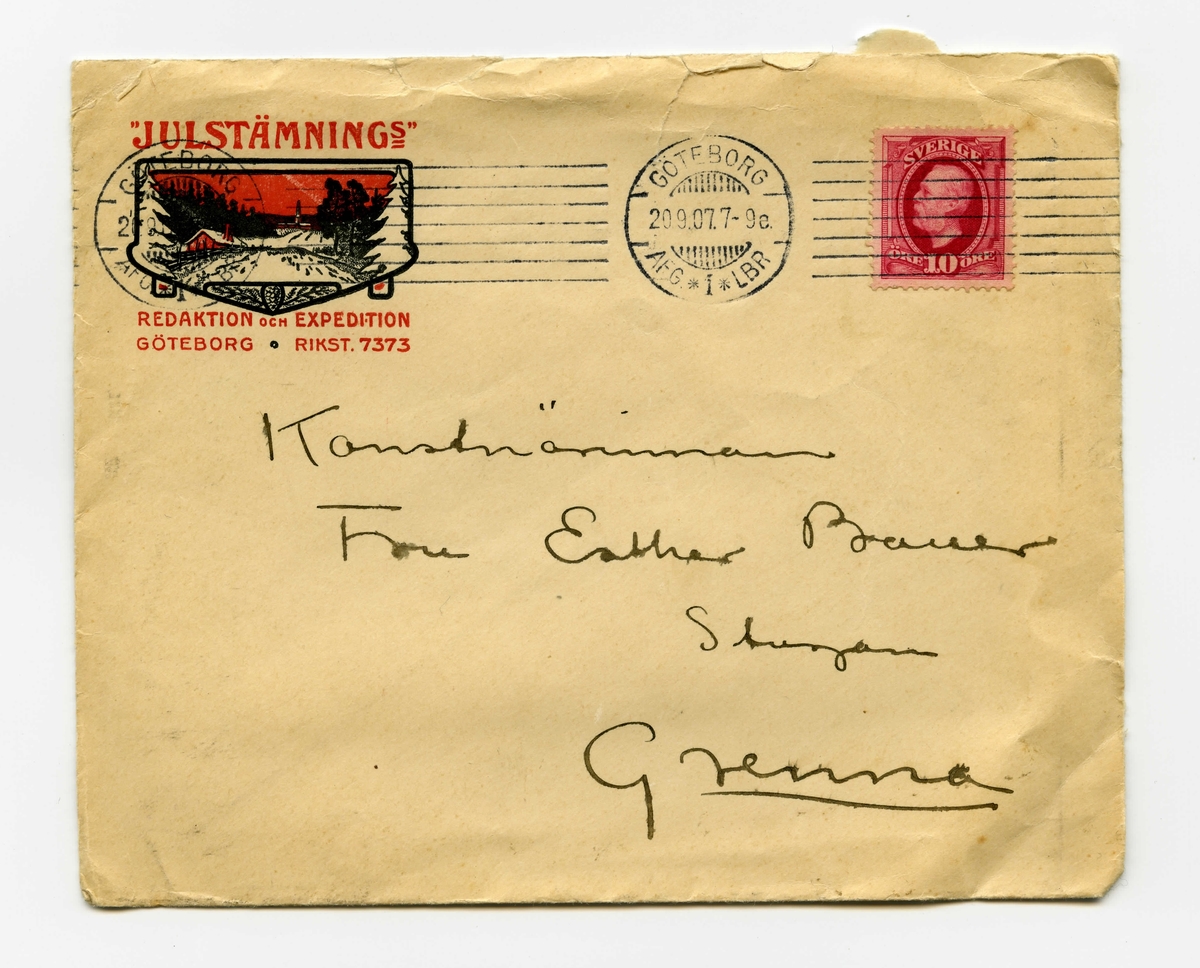 "JULSTÄMNINGS"
REDAKTION OCH EXPEDITION
GÖTEBORG • RIKST. 7373
GÖTEBORG
AFG. *1* LBR
GÖTEBORG
20.9.07.7-9e.
AFG. *1* LBR
SVERIGE
ÖRE 10 ÖRE
Konstnärinnan
Fru Esther Bauer
Stugan
Grenna